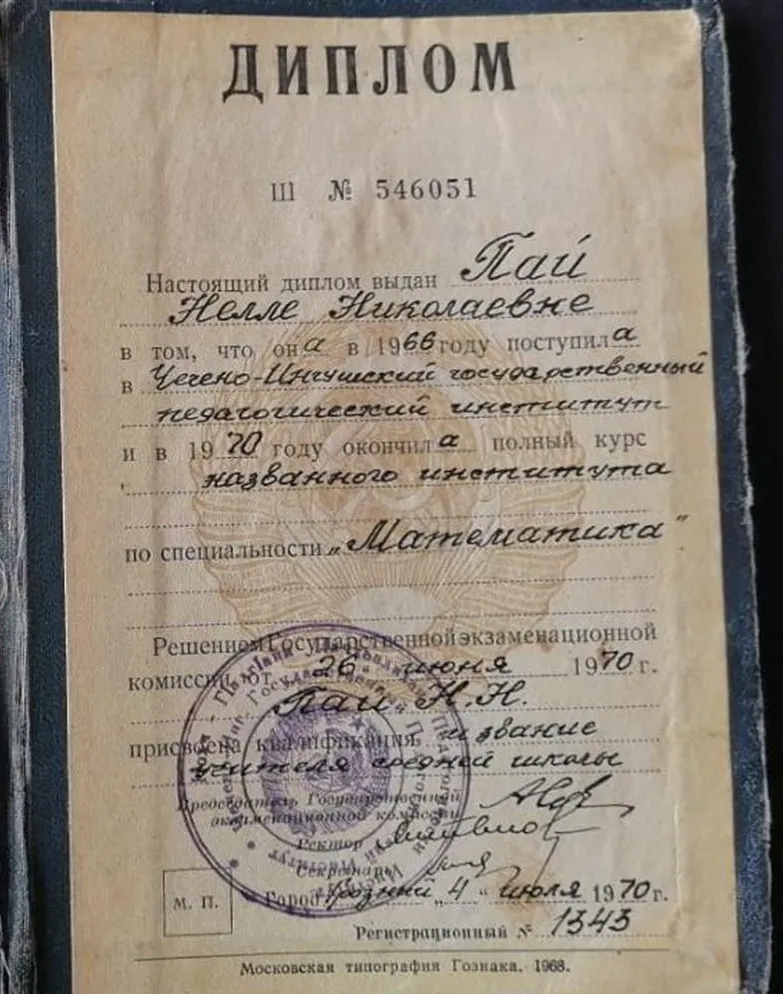 ДИПЛОМ
Ш № 546051
Настоящий диплом выдан Пай
Нелле Николаевне
в том, что она в 1966 году поступила
в Чечено-Ингушский государственный
педагогический институт
и в 1970 году окончила полный курс
названного института
по специальности „Математика"
Решением Государственной экзаменационной
комиссии от 26 июня 1970 г.
Пай Н. Н.
присвоена квалификация и звание
учителя средней школы
Председатель Государственной
экзаменационной комиссии
Ректор
Секретарь
М. П.
Город Грозный „4" июля 1970 г.
Регистрационный № 1343
Московская типография Гознака. 1968.